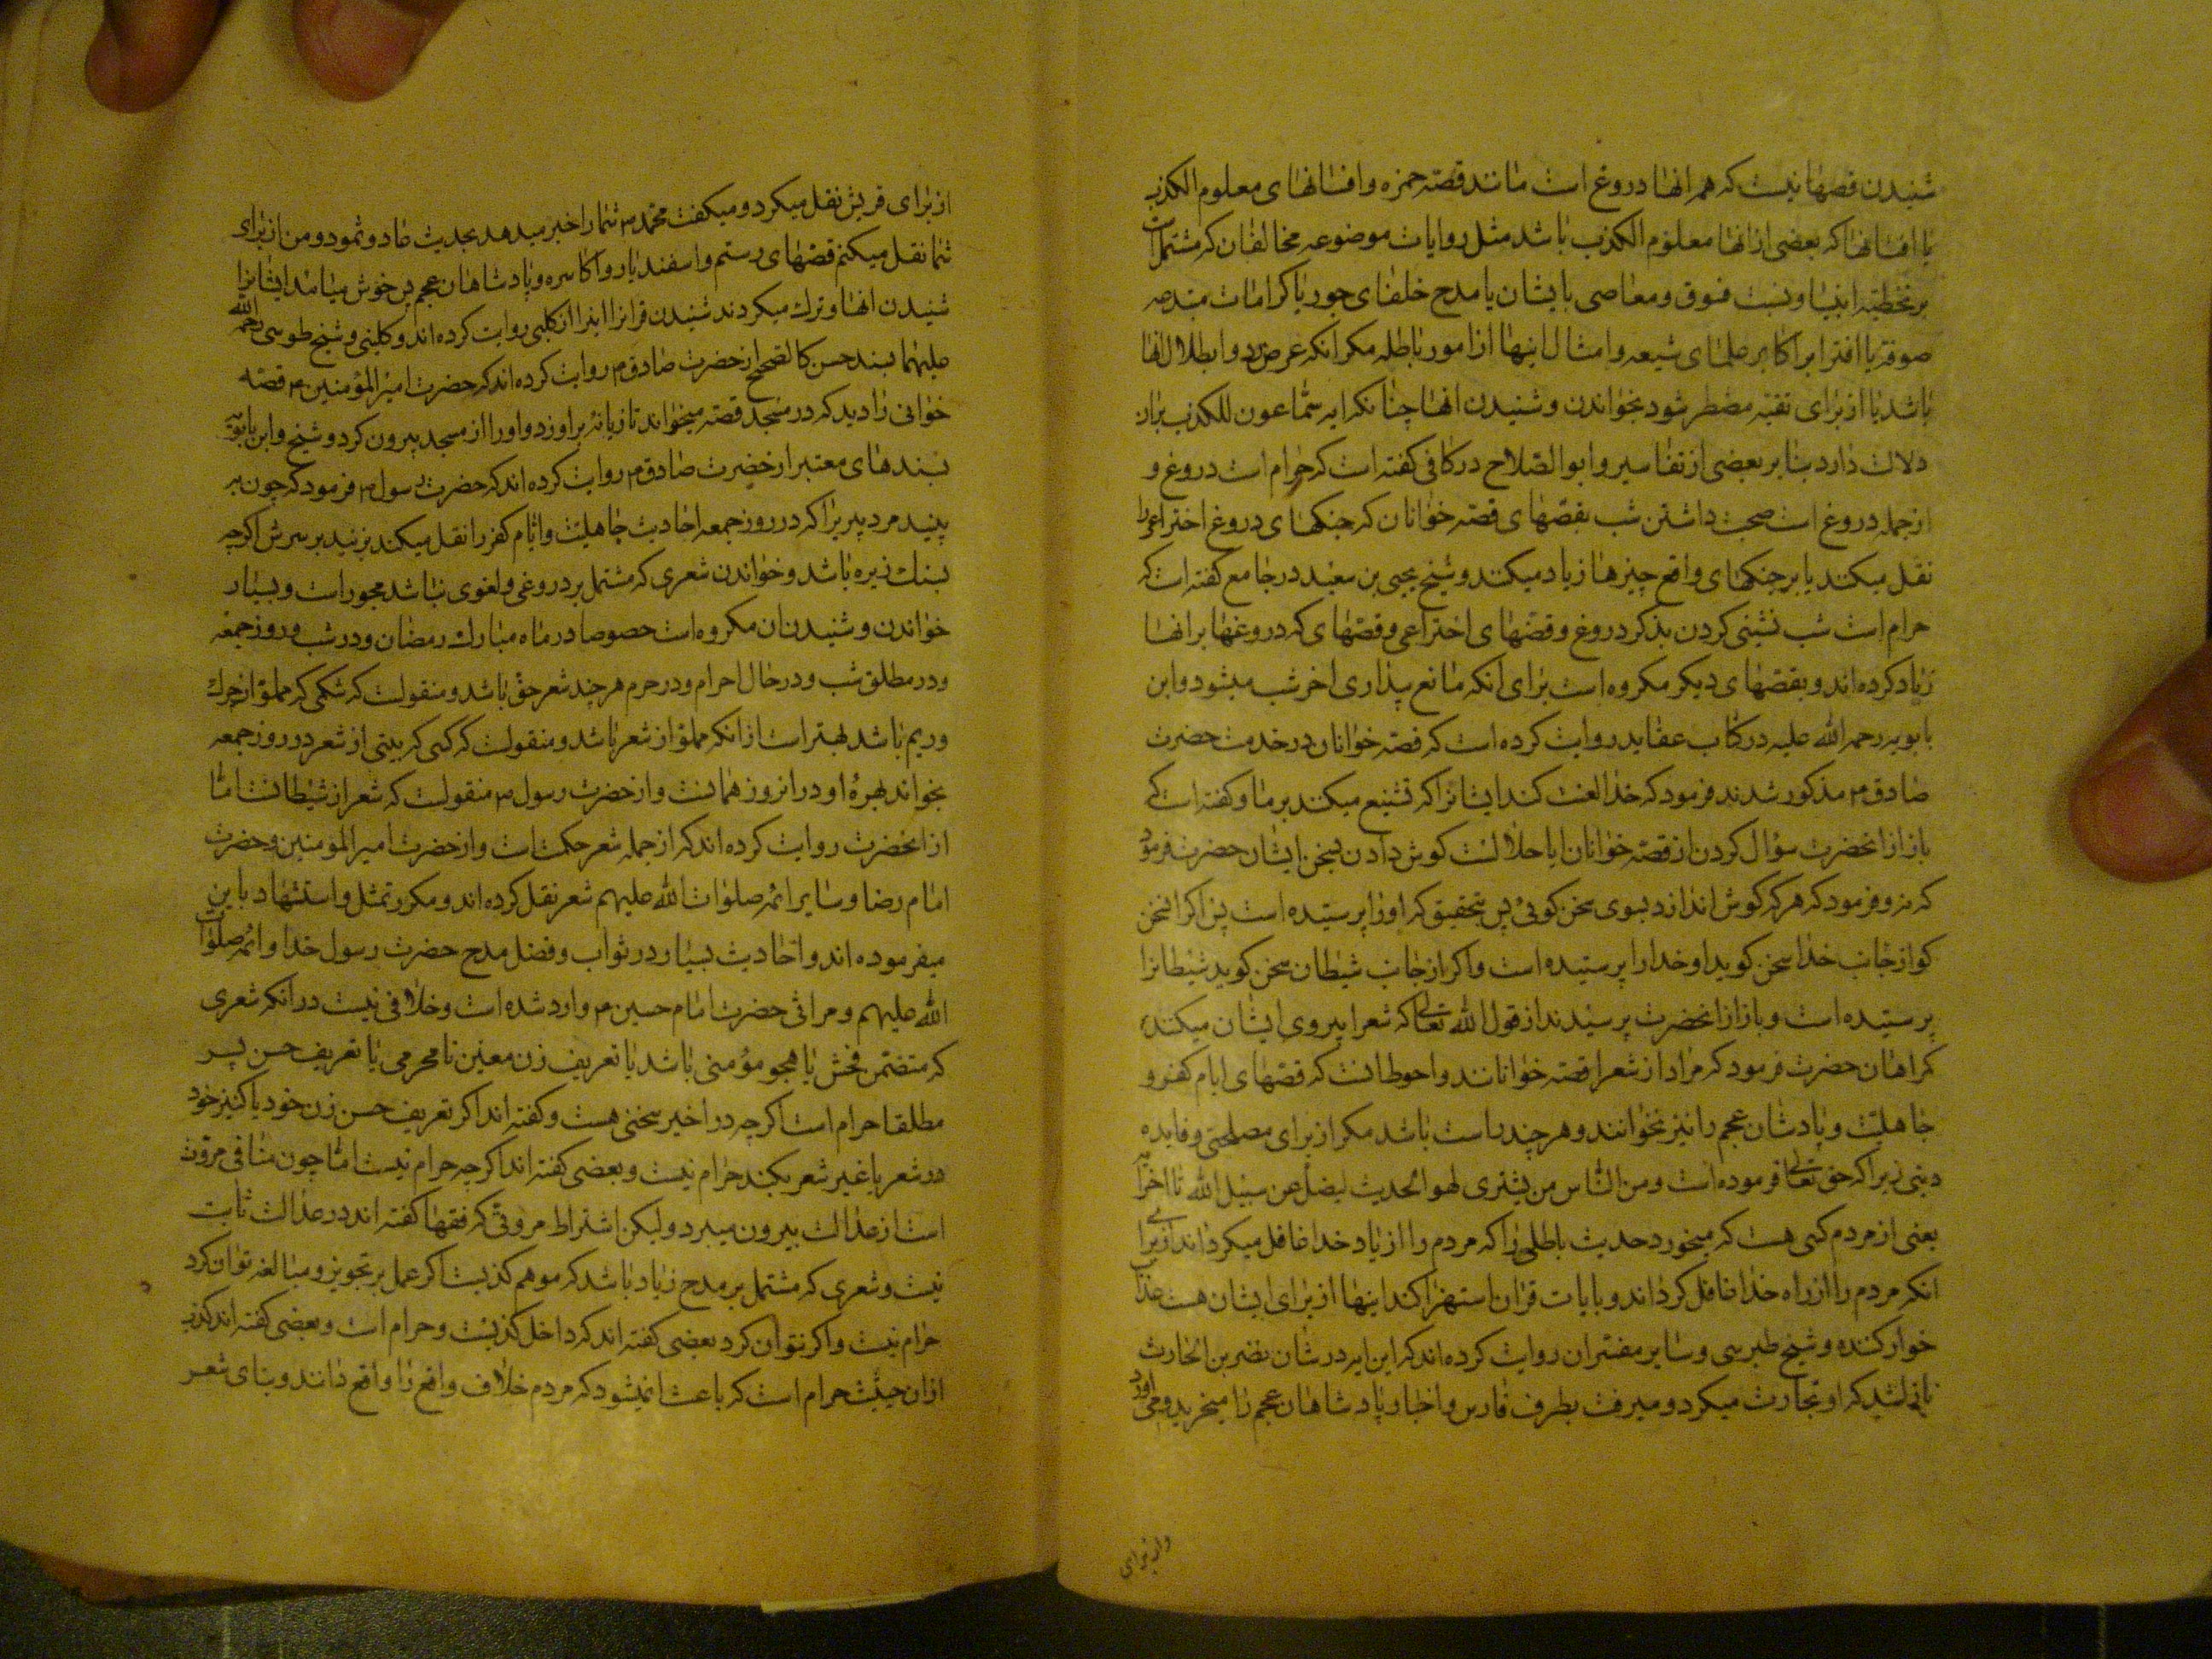 شنیدن قصهها نیست که همه انها دروغ است مانند قصّه حمزه و افسانهای معلوم الکذب
یا افسانها که بعضی از انها معلوم الکذب باشد مثل روایات موضوعه مخالفان که مشتمل است
بر تخطیه انبیا و نسبت فسوق و معاصی بایشان یا مدح خلفای جور یا کرامات مبتدعه
صوفیّه یا افترا بر اکابر علمای شیعه و امثال اینها از امور باطله مکر انکه غرض رد و ابطال انها
باشد یا از برای تقیّه مضطر شود بخواندن و شنیدن انها چنانکه ایه سمّاعون للکذب بران
دلالت دارد بنا بر بعضی از تفاسیر و ابو الصّلاح در کافی کفته است که حرام است دروغ و
از جمله دروغ است صحبت داشتن شب بقصّهای قصّه خوانان که جنکهای دروغ اختراعی را
نقل میکنند یا بر جنکهای واقع چیزها زیاد میکنند و شیخ یحیی بن سعید در جامع کفته است که
حرام است شب نشینی کردن بذکر دروغ و قصّهای اختراعی و قصّهای که دروغها بر انها
زیاد کرده اند و بقصّهای دیکر مکروه است برای انکه مانع بیداری اخر شب میشود و ابن
بابویه رحمه الله علیه در کتاب عقاید روایت کرده است که قصّه خوانان در خدمت حضرت
صادق م مذکور شدند فرمود که خدا لعنت کند ایشانرا که تشنیع میکنند بر ما و کفته است که
باز از انحضرت سؤال کردن از قصّه خوانان ایا حلالست کوش دادن بسخن ایشان حضرت فرمود
که نه و فرمود که هر که کوش اندازد بسوی سخن کویٔی پس بتحقیق که او را پرستیده است پس اکر ان سخن
کو از جانب خدا سخن کوید او خدا را پرستیده است و اکر از جانب شیطان سخن کوید شیطانرا
پرستیده است و باز از انحضرت پرسیدند از قول الله تعالی که شعرا پیروی ایشان میکنند
کمراهان حضرت فرمود که مراد از شعرا قصّه خوانانند و احوط انست که قصّهای ایام کفر و
جاهلیّت و پادشان عجم را نیز نخوانند و هر چند راست باشد مکر از برای مصلحتی و فایده
دینی زیرا که حق تعالی فرموده است و من النّاس من یشتری لهو الحدیث لیضل عن سبیل الله تا اخر ایه
یعنی از مردم کسی هست که میخورد حدیث باطلی را که مردم را از یاد خدا غافل میکرداند از برای
انکه مردم را از راه خدا غافل کرداند و بایات قران استهزا کند اینها از برای ایشان هست عذاب
خوار کننده و شیخ طبرسی و سایر مفسّران روایت کرده اند که این ایه در شان نضر بن الحارث
نازل شد که او تجارت میکرد و میرفت بطرف فارس و اخبار پادشاهان عجم را میخرید و می اورد
و از برای
از برای قریش نقل میکرد و میکفت محّمد م شما را خبر میدهد بحدیث عاد و ثمود و من از برای
شما نقل میکنم قصّهای رستم و اسفندیار و اکاسره و پادشاهان عجم پس خوش میامد ایشانرا
شنیدن انها و ترک میکردند شنیدن قرانرا اینرا از کلبی روایت کرده اند و کلینی و شیخ طوسی رحمه الله
علیهما بسند حسن کالصّحیح از حضرت صادق م روایت کرده اند که حضرت امیر المؤمنین م قصّه
خوانی را دید که در مسجد قصّه میخواند تازیانهٔ بر او زد و او را از مسجد بیرون کرد و شیخ و ابن بابویه
بسندهای معتبر از حضرت صادق م روایت کرده اند که حضرت رسول م فرمود که چون به
بینید مرد پیریرا که در روز جمعه احادیث جاهلیّت و ایّام کفر را نقل میکند بزنید بر سرش اکرچه
بسنک ریزه باشد و خواندن شعری که مشتمل بر دروغی و لغوی نباشد مجوز است و بسیار
خواندن و شنیدن ان مکروه است خصوصا در ماه مبارک رمضان و در شب و روز جمعه
و در مطلق شب و در حال احرام و در حرم هر چند شعر حقّ باشد و منقولست که شکمی که مملوّ از چرک
و ریم باشد بهتر است از انکه مملوّ از شعر باشد و منقولست که کسی که بیتی از شعر در روز جمعه
بخواند بهرهٔ او در انروز همانست و از حضرت رسول م منقولست که شعر از شیطانست امّا
از انحضرت روایت کرده اند که از جمله شعر حکمت است و از حضرت امیر المؤمنین و حضرت
امام رضا و سایر ائمّه صلوات الله علیهم شعر نقل کرده اند و مکرر تمثل و استشهاد باین
میفرموده اند و احادیث بسیار در ثواب و فضل مدح حضرت رسول خدا و ائمّه صلوات
الله علیهم و مراثی حضرت امام حسین م وارد شده است و خلافی نیست در انکه شعری
که متضمّن فحش یا هجو مؤمنی باشد یا تعریف زن معیّن نامحرمی یا تعریف حسن پسر
مطلقا حرام است اکرچه در اخیر سخنی هست و کفته اند اکر تعریف حسن زن خود یا کنیز خود
در شعر یا غیر شعر بکند حرام نیست و بعضی کفته اند اکرچه حرام نیست امّا چون منافی مروّت
است از عدالت بیرون میبرد و لیکن اشتراط مروّتی که فقها کفته اند در عدالت ثابت
نیست و شعری که مشتمل بر مدح زیاد باشد که موهم کذبست اکر عمل بر تجویز و مبالغه توان کرد
حرام نیست و اکر نتوان کرد بعضی کفته اند که داخل کذبست و حرام است و بعضی کفته اند کذب
از ان حیثیّت حرام است که باعث انمیشود که مردم خلاف واقع را واقع دانند و بنای شعر